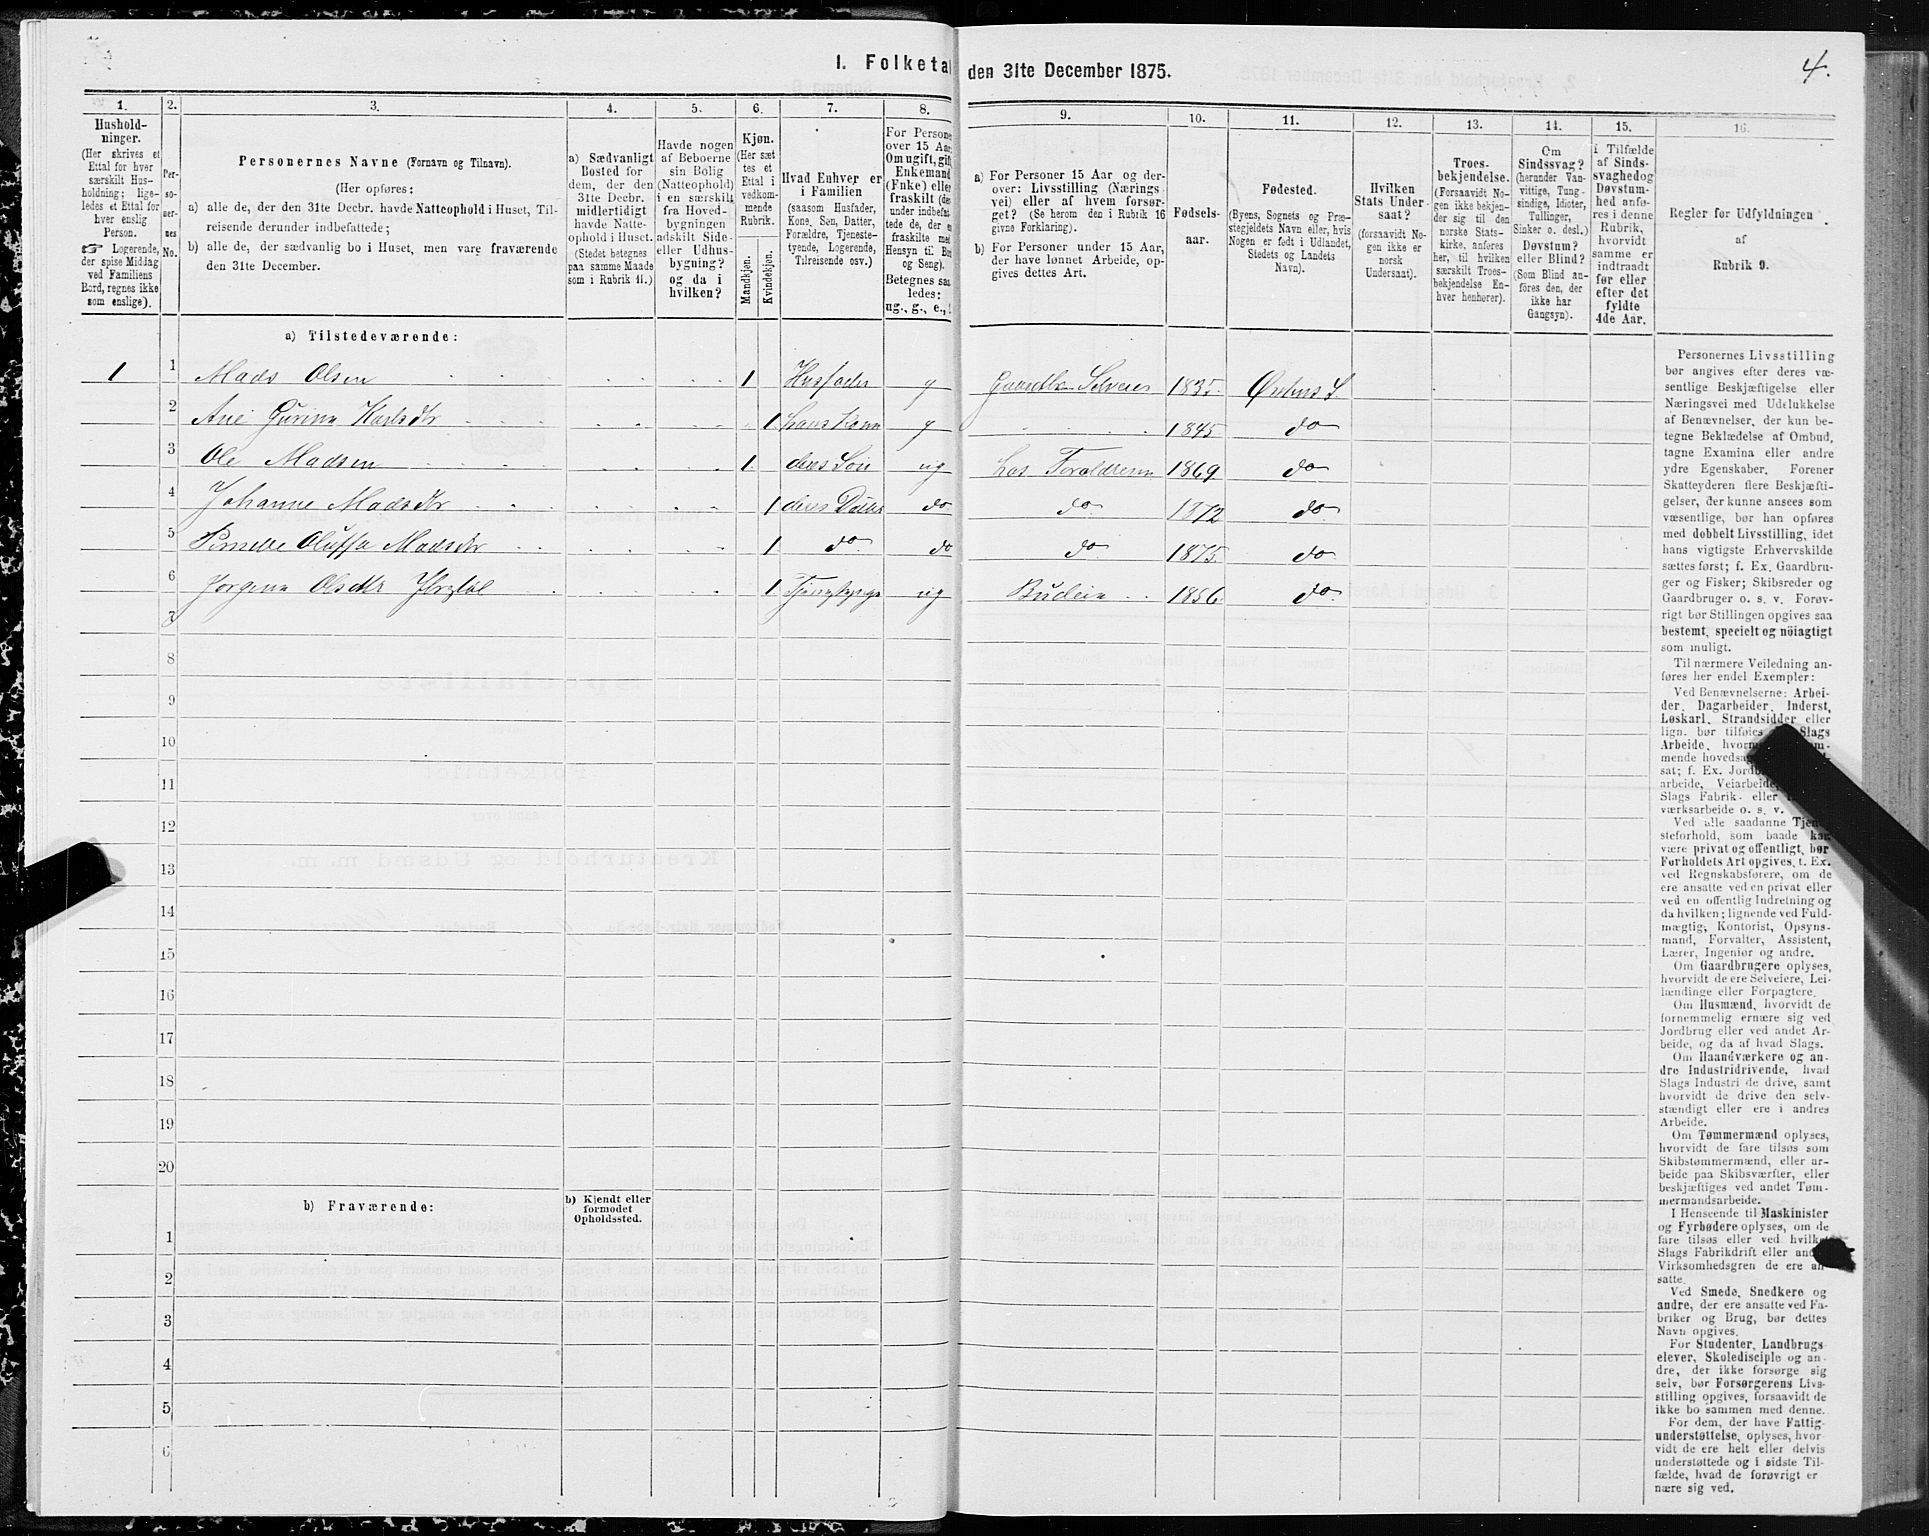 1. Folketa
den 31te December 1875.
4.
1.
2.
3.
4.
5.
6.
7.
8.
9.
10.
11.
12.
13.
14.
15.
16.
Hushold-
ninger.
(Her skrives et
Ettal for hver
særskilt Hus-
holdning; lige-
ledes et Ettal for
hver enslig
Person.
☞ Logerende,
der spise Middag
ved Familiens
Bord, regnes ikke
som enslige).
Per-
so-
ner-
nes
No.
Personernes Navne (Fornavn og Tilnavn).
(Her opføres:
a) alle de, der den 31te Decbr. havde Natteophold i Huset, Til-
reisende derunder indbefattede;
b) alle de, der sædvanlig bo i Huset, men vare fraværende
den 31te December.
a) Sædvanligt
Bosted for
dem, der den
31te Decbr.
midlertidigt
havde Natte-
ophold i Huset.
(Stedet betegnes
paa samme Maade
som i Rubrik 11.)
Havde nogen
af Beboerne
sin Bolig
(Natteophold)
i en særskilt
fra Hoved-
bygningen
adskilt Side-
eller Udhus-
bygning?
og da i
hvilken?
Kjøn.
(Her sæt
tes et
Ettal i
vedkom-
mende
Rubrik.
Mandkjøn.
Kvindekjøn.
Hvad Enhver er
i Familien
(saasom Husfader,
Kone, Søn, Datter,
Forældre, Tjeneste-
tyende, Logerende,
Tilreisende osv.)
For Persone
over 15 Aar
Om ugift, gift
Enkemand
(Enke) eller
fraskilt (der
under indbefat
tede de, der er
fraskilte med
Hensyn til. Bor
og Seng).
Betegnes saa
ledes:
ug., g., e., f.
a) For Personer 15 Aar og der-
over: Livsstilling (Nærings
vei) eller af hvem forsør-
get? (Se herom den i Rubrik 16
givne Forklaring).
b) For Personer under 15 Aar,
der have lønnet Arbeide, op-
gives dettes Art.
Fødsels-
aar.
Fødested.
(Byens, Sognets og Præ-
stegjeldets Navn eller, hvis
Nogen er født i Udlandet,
Stedets og Landets
Navn).
Hvilken
Stats Under-
saat?
(forsaavidt No-
gen ikke er
norsk
Undersaat).
Troes-
bekjendelse.
(Forsaavidt No-
gen ikke bekjen-
der sig til den
norske Stats-
kirke, anføres
her, til hvilken
særskilt Troes-
bekjendelse En-
hver henhører).
Om
Sindssvag?
(herunder Van-
vittige, Tung-
sindige, Idioter,
Tullinger,
Sinker o. desl.)
Døvstum?
eller Blind?
(Som Blind an-
føres den, der
ikke har
Gangsyn).
i Tilfælde
af Sinds-
svaghed og
Døvstum-
hed anfø-
res i denne
Rubrik,
hvorvidt
samme er
indtraadt
før eller
efter det
fyldte
4de Aar.
Regler for Udfyldningen
af
Rubrik 9.
a) Tilstedeværende:
1 1 Mads Olsen 1 Husfader g Gaardbr Selveier 1835 Ørsten S.
2 Ane Gurine Karlsdtr 1 hans Kone g 1845 do
3 Ole Madsen 1 deres Søn ug hos Forældrene 1869 do
4 Johanne Madsdtr 1 deres Datter do do 1872 do
5 Pernille Oluffa Madsdtr 1 do do do 1875 do
6 Jørgine Olsdtr 1 Tjenestepige ug Budeie 1856 do
7
8
9
10
11
12
13
14
15
16
17
18
19
20
b) Fraværende:
b) Kjendt eller
formodet
Opholdssted.
1
2
3
4
5
6
Personernes Livsstilling
bør angives efter deres væ-
sentlige Beskjæftigelse eller
Næringsvei med Udelukkelse
af Benævnelser, der kun be-
tegne Beklædelse af Ombud,
tagne Examina eller andre
ydre Egenskaber. Forener
Skatteyderen flere Beskjæfti-
gelser, der kunne ansees som
væsentlige, bør han opføres
med dobbelt Livsstilling, idet
hans vigtigste Erhvervskilde
sættes først; f. Ex. Gaardbru-
ger og Fisker; Skibsreder og
Gaardbruger o. s. v. Forøv-
rigt bør Stillingen opgives saa
bestemt, specielt og nöiagtigt
som muligt.
Til nærmere Veiledning an-
føres her endel Exempler:
Ved Benævnelserne: Arbei-
der, Dagarbeider, Inderst,
Løskarl, Strandsidder eller
lign. bør tilføies Slags
Arbeide, hvor
mende hovedsa
sat; f. Ex. Jord
arbeide, Veiarbeide,
Slags Fabrik- eller
værksarbeide o. s. v.
Ved alle saadanne Tjen
steforhold, som baade kan
være privat og offentligt, bør
Forholdets Art opgives, t. Ex.
ved Regnskabsførere, om de
ere ansatte ved en privat eller
ved en offentlig Indretning og
da hvilken; lignende ved Fuld-
mægtig, Kontorist, Opsyns-
mand, Forvalter, Assistent,
Lærer, Ingeniør og andre.
Om Gaardbrugere oplyses,
hvorvidt de ere Selveiere, Lei-
lændinge eller Forpagtere.
Om Husmænd, hvorvidt de
fornemmelig ernære sig ved
Jordbrug eller ved andet Ar-
beide, og da af hvad Slags.
Om Haandværkere og an-
dre Industridrivende, hvad
Slags Industri de drive, samt
hvorvidt de drive den selv-
stændigt eller ere i andres
Arbeide.
Om Tømmermænd oplyses,
hvorvidt de fare tilsøs som
Skibstømmermænd, eller ar-
beide paa Skibsværfter, eller
beskjæftiges ved andet Tøm-
mermandsarbeide.
I Henseende til Maskinister
og Fyrbødere oplyses, om de
fare tilsøs eller ved hvilke
Slags Fabrikdrift eller and
Virksomhedsgren de ere an
satte.
Ved Smede, Snedkere og
andre, der ere ansatte ved Fa-
briker og Brug, bør dettes
Navn opgives.
For Studenter, Landbrugs
elever, Skoledisciple og an-
dre, der ikke forsørge sig
selv, bør Forsørgerens Livs-
stilling opgives, forsaavidt de
ikke bo sammen med denne.
For dem, der have Fattig-
understøttelse, oplyses, hvor-
vidt de ere helt eller delvis
understøttede og i sidste Til-
fælde, hvad de forøvrigt er
nære sig ved.